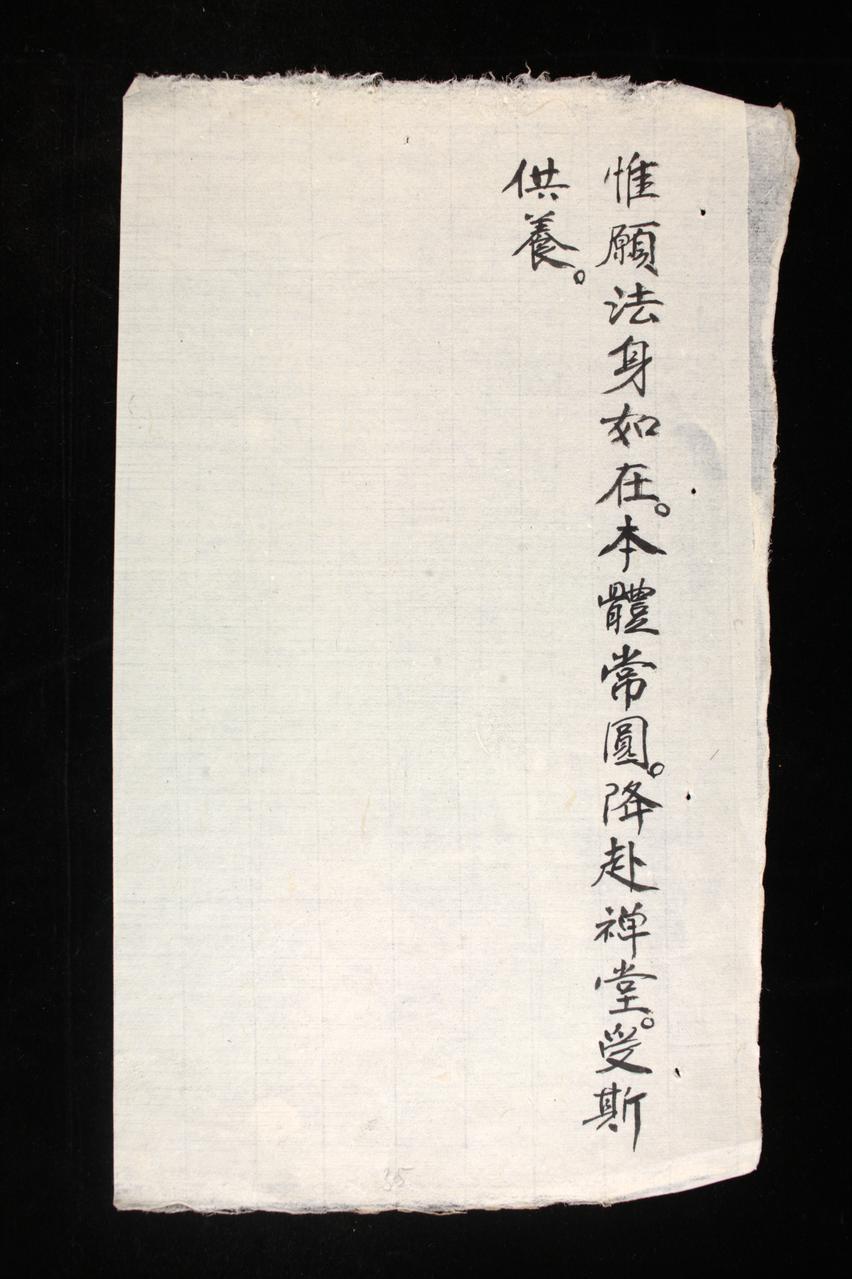 惟願法身如在。本體常圓。降赴禅堂。受斯
供養。
35